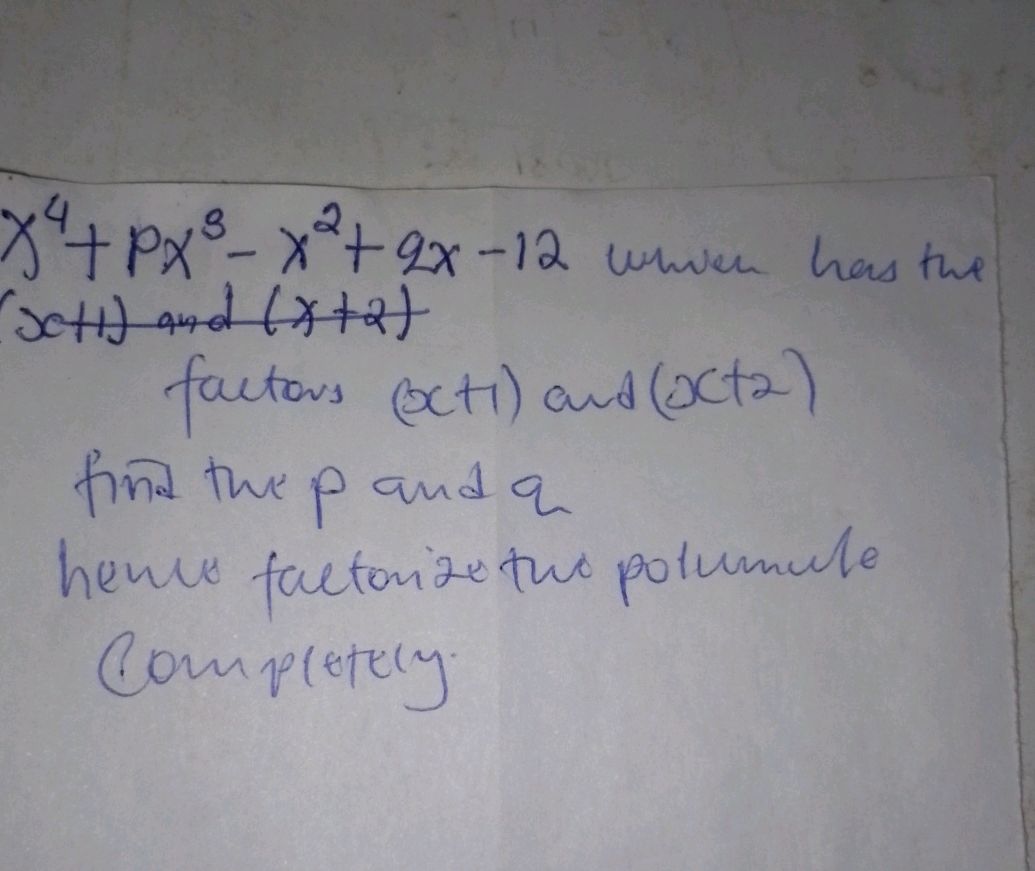 x⁴ + px³ - x² + qx - 12 which has the
(x+1) and (x+2)
factors (x+1) and (x+2)
find the p and q
hence factorize the
Completely.